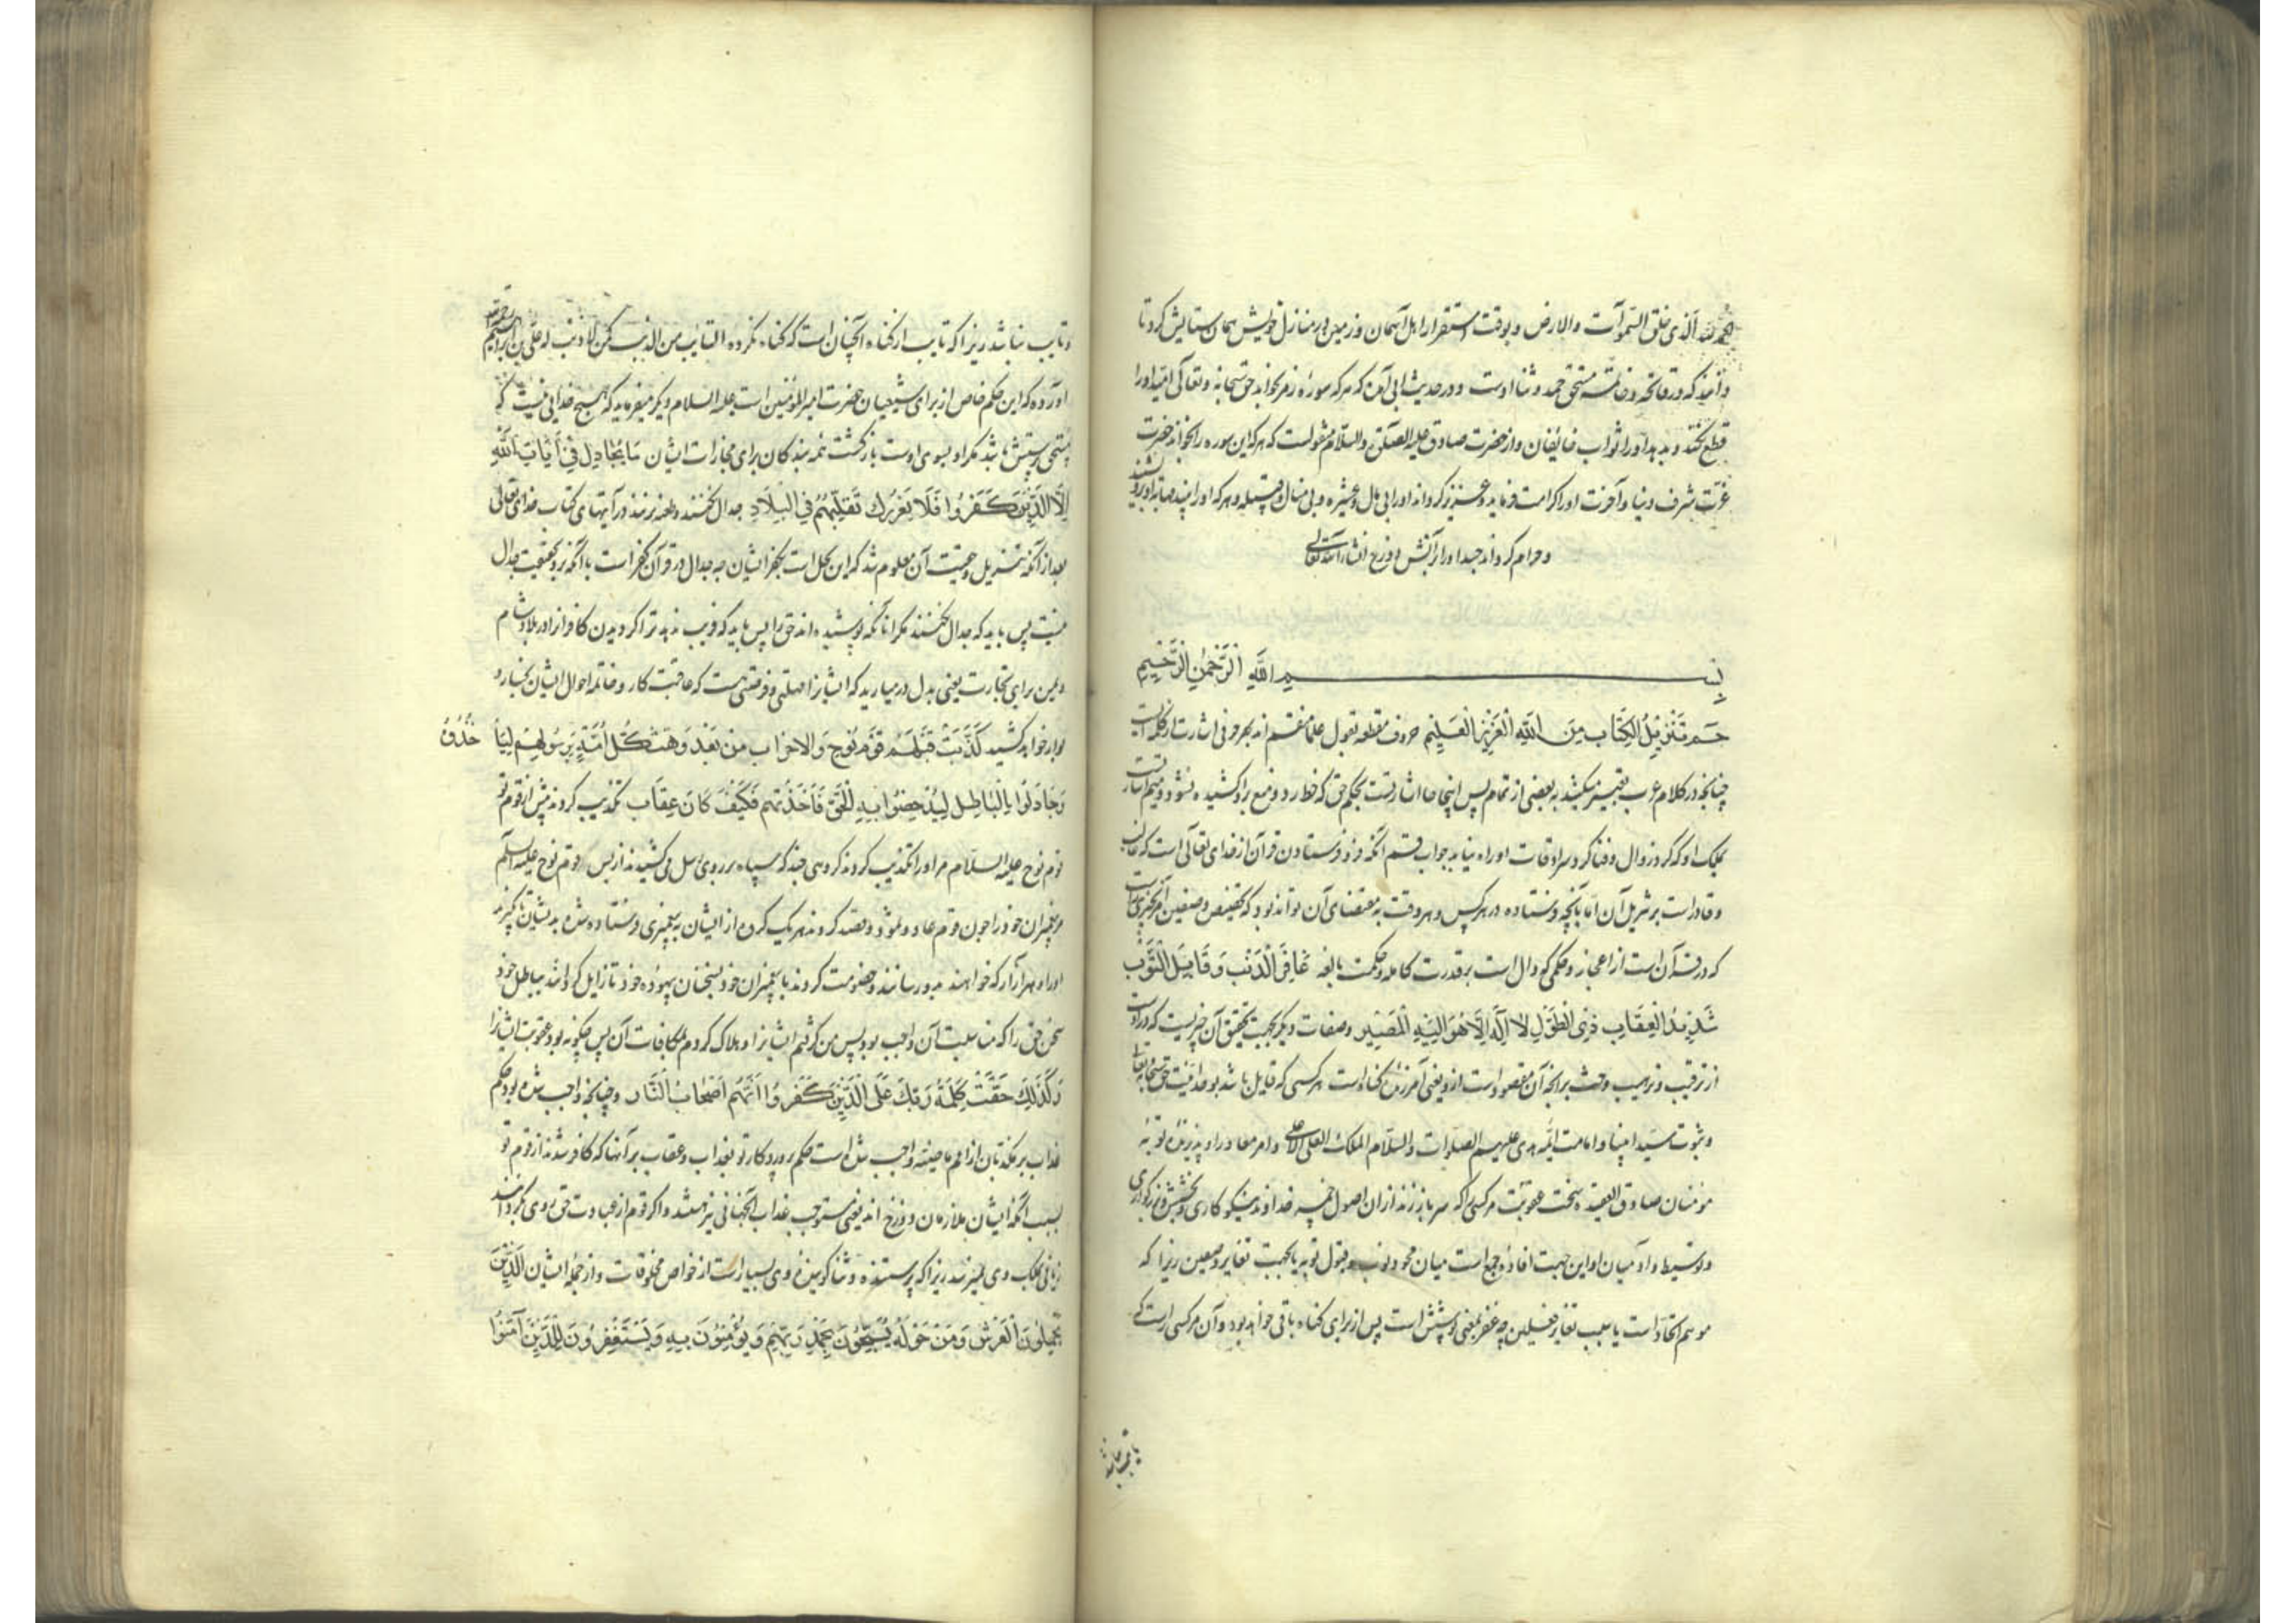 الحمد لله الذی خلق السموات والارض و بوقت استقرار اهل آسمان و زمین در منازل خویش همان ستایش کرد تا
دانید که در فاتحه و خاتمه مستحق حمد و ثنا اوست و در حدیث ابی آمده که هر که سوره زمر بخواند حق سبحانه و تعالی امید او را
قطع نکند و بدهد او را ثواب خایفان و از حضرت صادق علیه الصلوة والسلام منقولست که هر که این سوره را بخواند حضرت
عزت بشرف دنیا و آخرت او را کرامت فرماید و عزیز گرداند او را بی مال و عشیره و هر که او را بیند
و حرام گرداند جسد او را از آتش دوزخ انشاء الله تعالی
بسم الله الرحمن الرحیم
حم تنزیل الکتاب من الله العزیز العلیم حروف مقطعه بقول علما مقسم اند بهر حرفی اشارت از کلمه ایست
چنانچه در کلام عرب تعبیر میکنند به بعضی از تمام پس اینجا حا اشارتست بحکم حق که خط رد و منع بر او کشیده نشود و میم اشارتست
بملک او که گرد زوال و فنا گرد سرادقات او راه نیابد جواب قسم آنکه فرو فرستادن قرآن از خدای تعالی است که غالب
و قادر است بر تنزیل آن اما بآنچه فرستاده در هر کس و هر وقت به مقتضای آن تواند بود که تخصیص وصفین
که در قرآن است از اعجاز و حکمی که دال است بر قدرت کامله و حکمت بالغه غافر الذنب و قابل التوب
شدید العقاب ذی الطول لا اله الا هو الیه المصیر و صفات دیگر بجهت تحقیق آن چیزیست که در اوست
از ترغیب و ترهیب و حث بر آنچه آن مقصود است از و یعنی آمرزنده گناه است هر کسی که قایل باشد بوحدانیت حق سبحانه تعالی
و نبوت سید انبیا و امامت ائمه هدی علیهم الصلوات والسلام الملک العلی الاعلی و امر معاد را و پذیرنده توبه
مومنان صادق العقیده سخت عقوبت مر کسی را که سر باز زند از ان اصول خمسه خداوند نیکوکاری و بخشش و بزرگواری
و توسیط واو میان او این جهت افاده جمع است میان محو ذنوب و قبول توبه یا بجهت تغایر وصفین زیرا که
موهم اتحاد است یا بسبب تغایر فعلین چه غفر بمعنی پوشش است پس از برای گناه باقی خواهد بود و آن مر کسی راست که
و تایب نباشد زیرا که تایب از گناه آنچنان است که گناه نکرده التایب من الذنب کمن لا ذنب له علی بن ابراهیم
آورده که این حکم خاص از برای شیعیان حضرت امیرالمؤمنین است علیه السلام و دیگر میفرماید که هیچ خدایی نیست که
مستحق پرستش باشد مگر او بسوی اوست بازگشت همه بندگان برای مجازات ایشان ما یجادل فی آیات الله
الا الذین کفروا فلا یغررک تقلبهم فی البلاد جدال نکنند و طعنه نزنند در آیتهای کتاب خدای تعالی
بعد از آنکه تنزیل و حقیت آن معلوم شد که این محل است بکفر ایشان چه جدال در قرآن کفر است با آنکه نزد حقیقت جدال
نیست پس باید که جدال نکنند مگر آنانکه پوشیده اند حق را پس باید که فریب ندهد ترا گردیدن کافران در بلاد شام
و یمن برای تجارت یعنی بدل در میارید که ایشانرا مهلتی و فرصتی هست که عاقبت کار و خاتمه احوال ایشان بخسار و
بوار خواهد کشید کذبت قبلهم قوم نوح والاحزاب من بعد وهمت کل امة برسولهم لیأ خذوه
وجادلوا بالباطل لیدحضوا به الحق فاخذتهم فکیف کان عقاب تکذیب کردند پیش از قوم تو
قوم نوح علیه السلام مر او را تکذیب کردند گروهی چند که سپاه بر روی رسل می کشیدند از پس قوم نوح علیه السلام
مر پیغمبران خود را چون قوم عاد و ثمود و قصد کردند هر یک گروه از ایشان به پیغمبری فرستاده شده بدیشان تا گیرند
او را و هر آزار که خواهند بدو رسانند و خصومت کردند با پیغمبران خود بسخنان بیهوده خود تا زایل گردانند بباطل خود
سخن حق را که متابعت آن واجب بود پس من گرفتم ایشانرا و هلاک کردم بمکافات آن پس چگونه بود عقوبت ایشانرا
وکذلک حقت کلمة ربک علی الذین کفروا انهم اصحاب النار و چنانچه واجب شده بود حکم
عذاب بر مکذبان از امم ماضیه واجب شده است حکم پروردگار تو بعذاب و عقاب بر آنها که کافر شدند از قوم تو
بسبب آنکه ایشان ملازمان دوزخ اند یعنی مستوجب عذاب آنجهانی نیز هستند و اگر قوم از عبادت حق روی بگردانند
زیانی بملک وی نمیرسد زیرا که پرستنده و ثنا گوینده وی بسیار است از خواص مخلوقات و از جمله ایشان الذین
یحملون العرش ومن حوله یسبحون بحمد ربهم ویؤمنون به ویستغفرون للذین آمنوا